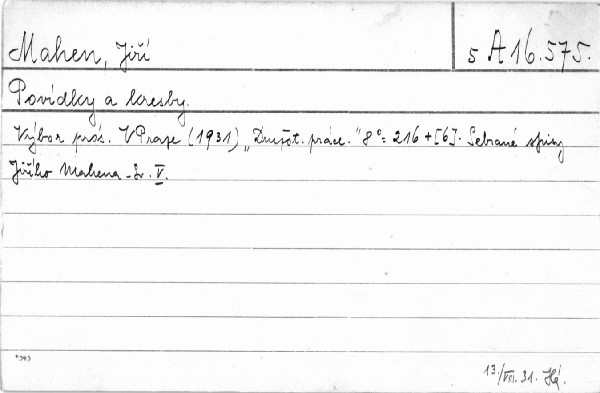 Mahen, Jiří
5 A 16.575.
Povídky a kresby.
Výbor prós. V Praze (1931) „Družst. práce." 8°= 216 + [6]. Sebrané spisy
Jiřího Mahena - Sv. V.
13./VIII. 31. Há.